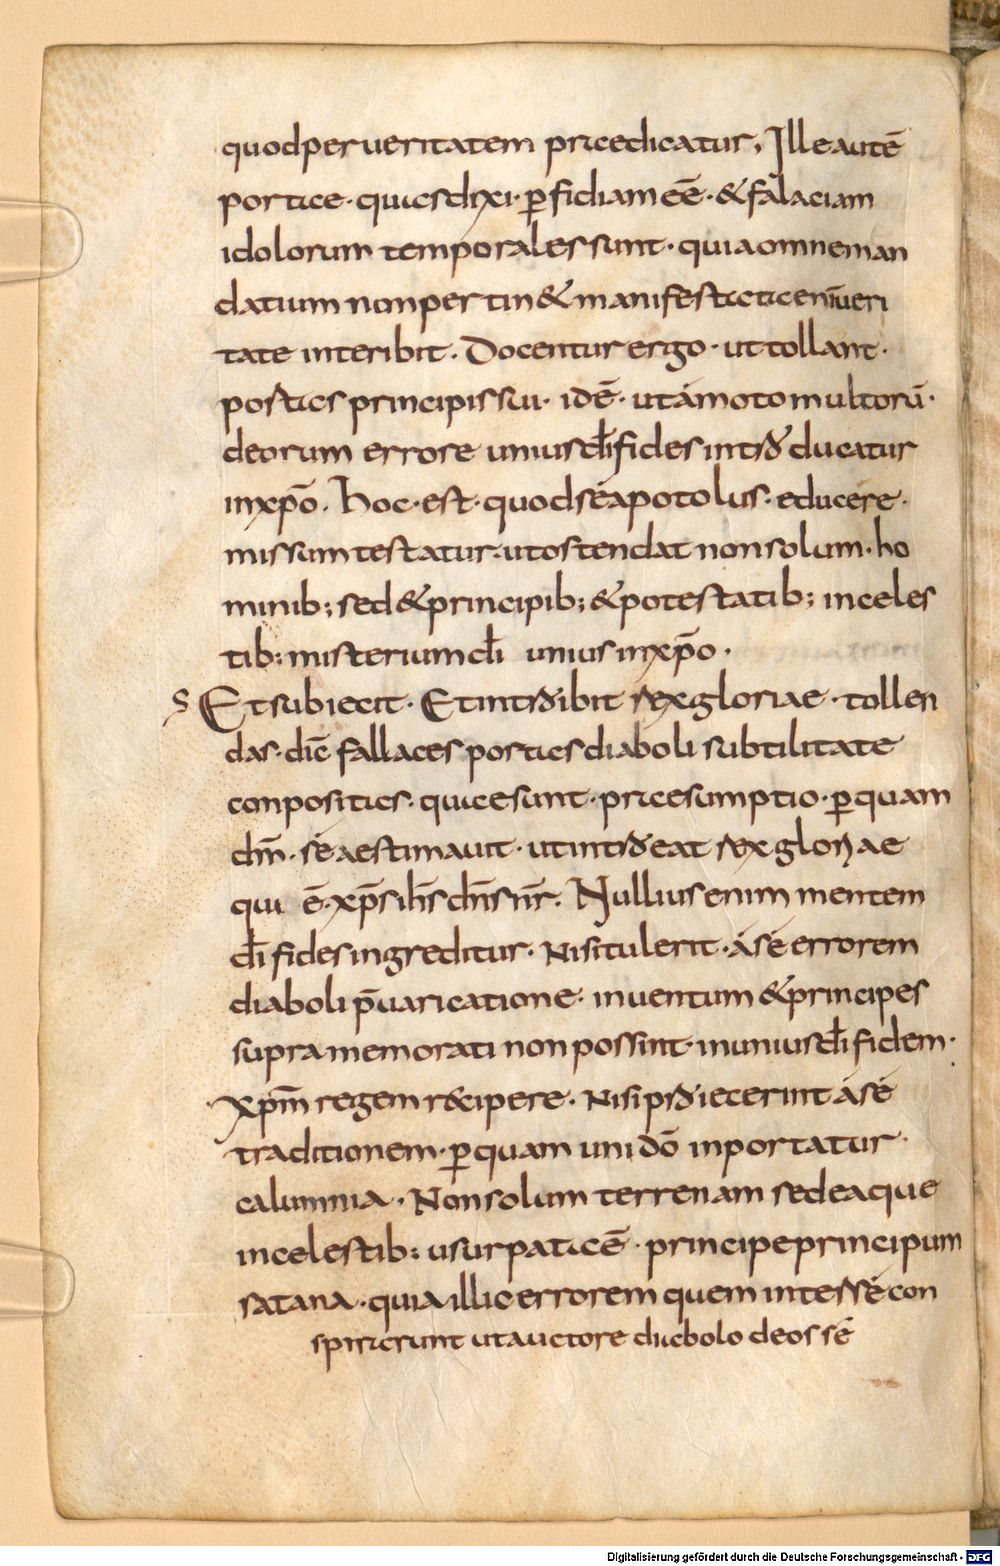 quod per ueritatem praedicatur, Ille autē
portae · quas dixi · ꝑfidiam eē · & falaciam
idolorum temporales sunt · quia omne man
datium non pertin& manifestata enī ueri
tate interibit. Docentur ergo · ut tollant ·
postas principis sui · idē · ut ámoto multorū ·
deorum errore unius dī fides intr&ducatur
in xp̄o. hoc · est · quod sé apotolus · educere ·
missum testatur · ut ostendat non solum · ho
minib; sed & principib; & potestatib; in celes
tib: misterium dī unius in xp̄o ·
S Et subiecit · Et intr&ibit rex gloriae · tollen
das · dic̄ fallaces portas diaboli subtilitate
conpositas · quae sunt · praesumptio · ꝑ quam
dm̄ · sé aestimauit · ut intr&eat rex gloriae
qui ē · xp̄s ih̄s dn̄s nr̄. Nullius enim mentem
dī fides ingreditur · Nisi tulerit · á sé errorem
diaboli p̄uaricatione · inuentum & principes
supra memorati non possint · in unius dī fidem ·
xpm̄ regem r&cipere. Nisi pr&iecerint á sé
traditionem · ꝑ quam uni dō inportatur ·
calumnia. Non solum terrenam sed eaque
in celestib: usurpata ē · principe principum
satana · quia illic errorem quem intessé con
spirarunt ut auctore diabolo deos sé